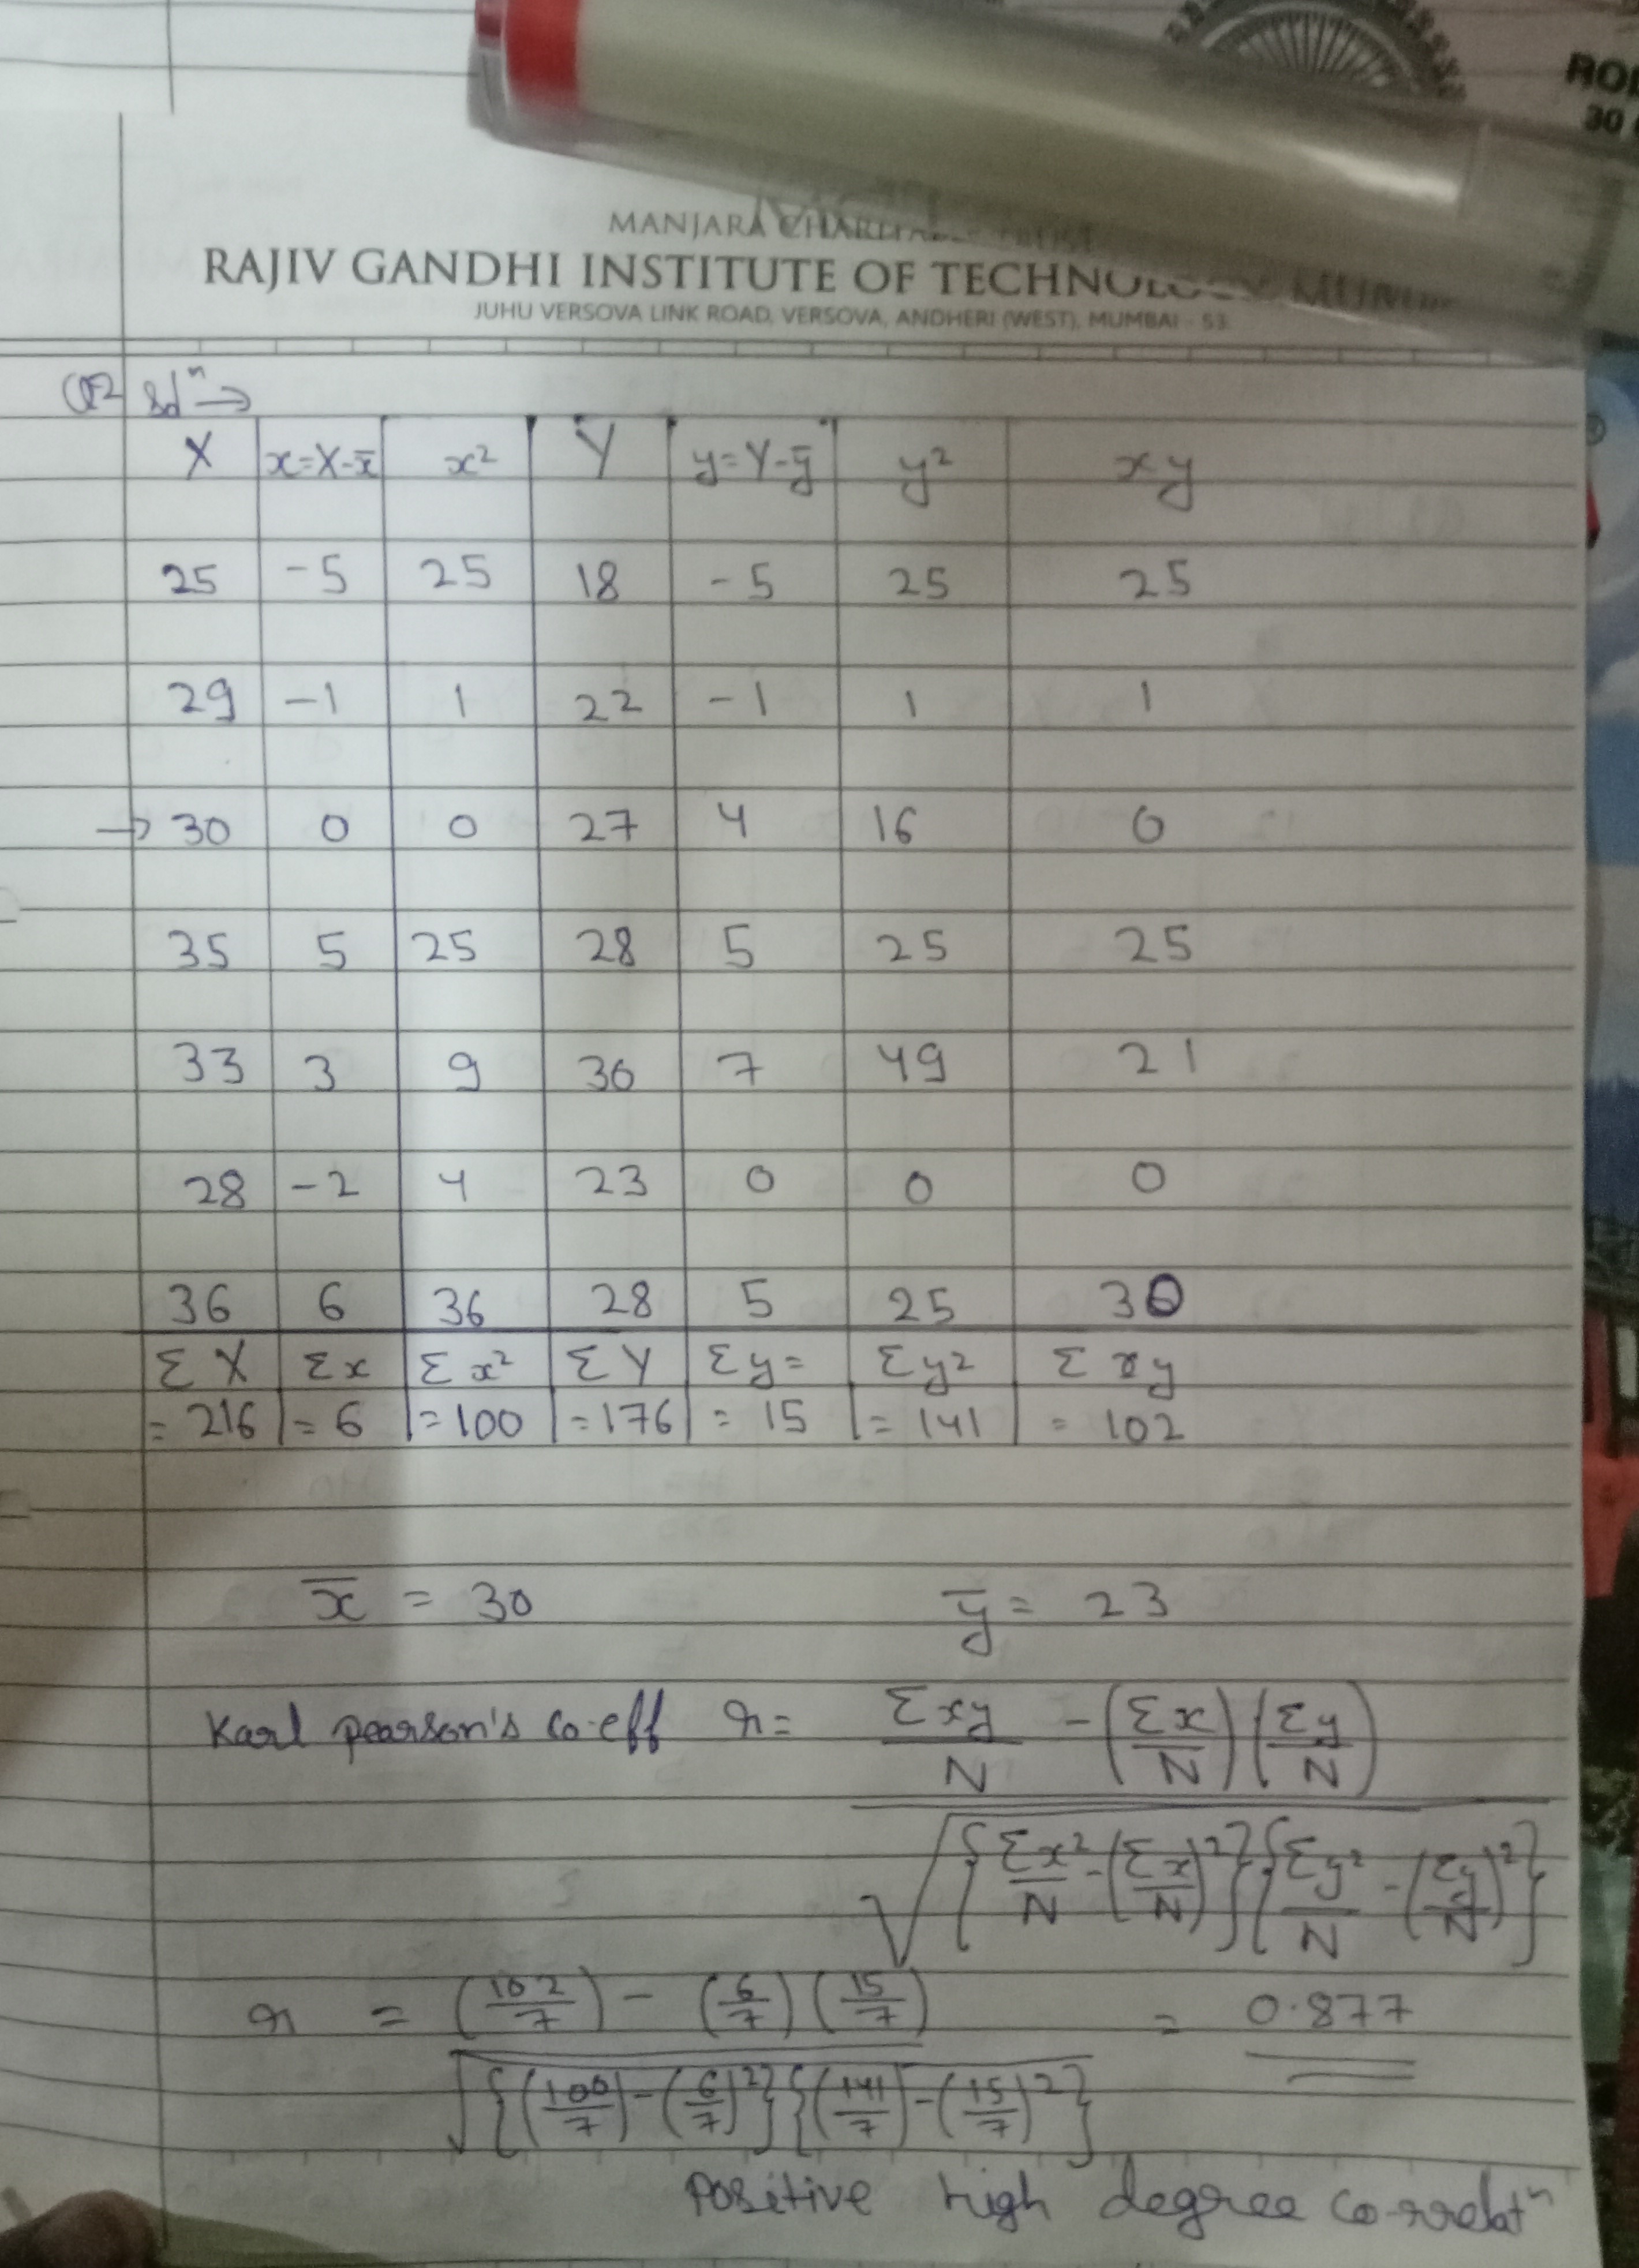 ROD
30
MANJARA
RAJIV GANDHI INSTITUTE OF TECHNOLOGY, MUMB
JUHU VERSOVA LINK ROAD, VERSOVA, ANDHERI (WEST), MUMBAI - 53
Solⁿ →
X x=X-x̄ x² Y y=Y-ȳ y² xy
25 -5 25 18 -5 25 25
29 -1 1 22 -1 1 1
→ 30 0 0 27 4 16 0
35 5 25 28 5 25 25
33 3 9 30 7 49 21
28 -2 4 23 0 0 0
36 6 36 28 5 25 30
ΣX Σx Σx² ΣY Σy= Σy² Σxy
= 216 = 6 = 100 = 176 = 15 = 141 = 102
x̄ = 30 ȳ = 23
Karl pearson's co-eff r = Σxy/N - (Σx/N)(Σy/N)
√{Σx²/N - (Σx/N)²}{Σy²/N - (Σy/N)²}
r = (102/7) - (6/7)(15/7) = 0.877
√{(100/7) - (6/7)²}{(141/7) - (15/7)²}
Positive high degree co-rrelatⁿ